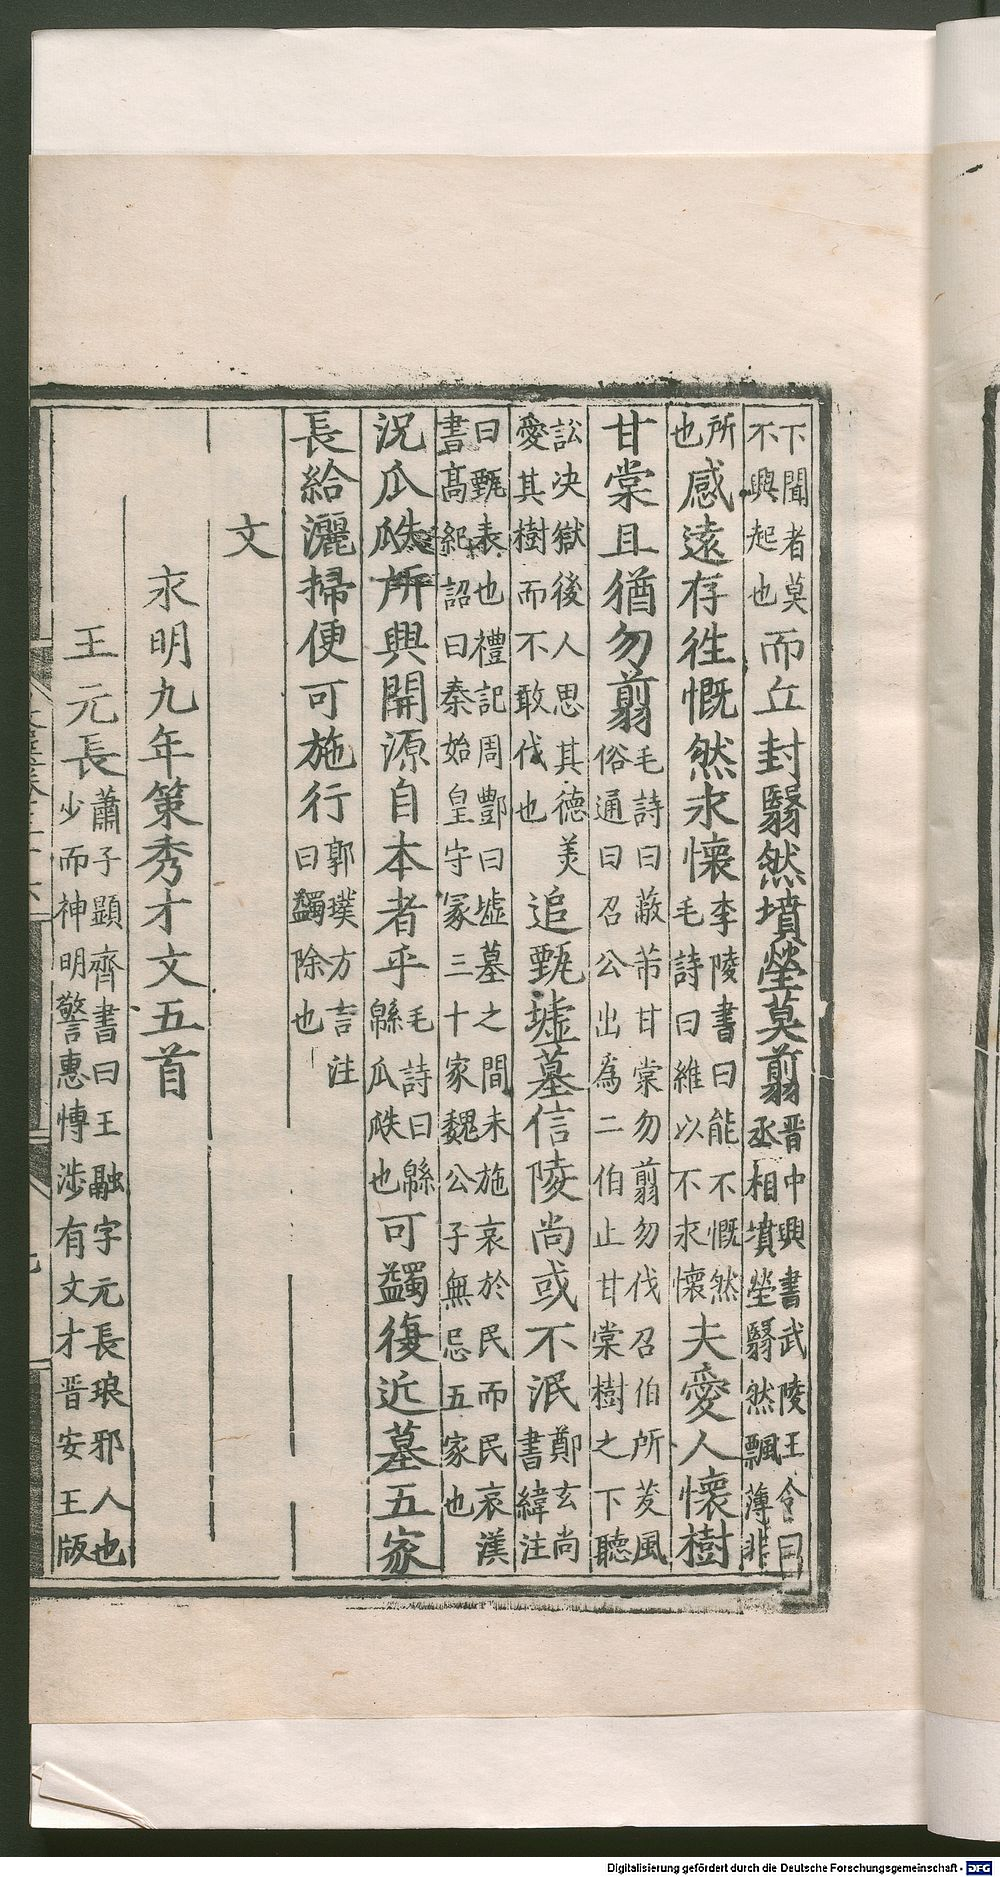 下聞者莫
不興起也
而丘封翳然墳塋莫翦
晋中興書武陵王令曰
丞相墳塋翳然飄薄非
所
也
感遠存徃慨然永懷
李陵書曰能不慨然
毛詩曰維以不永懷
夫愛人懷樹
甘棠且猶勿翦
毛詩曰蔽芾甘棠勿翦勿伐召伯所茇風
俗通曰召公出為二伯止甘棠樹之下聽
訟决獄後人思其德美
愛其樹而不敢伐也
追甄墟墓信陵尚或不泯
鄭玄尚
書緯注
曰甄表也禮記周酆曰墟墓之間未施哀於民而民哀漢
書高紀詔曰秦始皇守冢三十家魏公子無忌五家也
况瓜瓞所興開源自本者乎
毛詩曰緜
緜瓜瓞也
可蠲復近墓五家
長給灑掃便可施行
郭璞方言注
曰蠲除也
文
永明九年策秀才文五首
王元長
蕭子顯齊書曰王融字元長琅邪人也
少而神明警惠慱涉有文才晋安王版
Digitalisierung gefördert durch die Deutsche Forschungsgemeinschaft - DFG